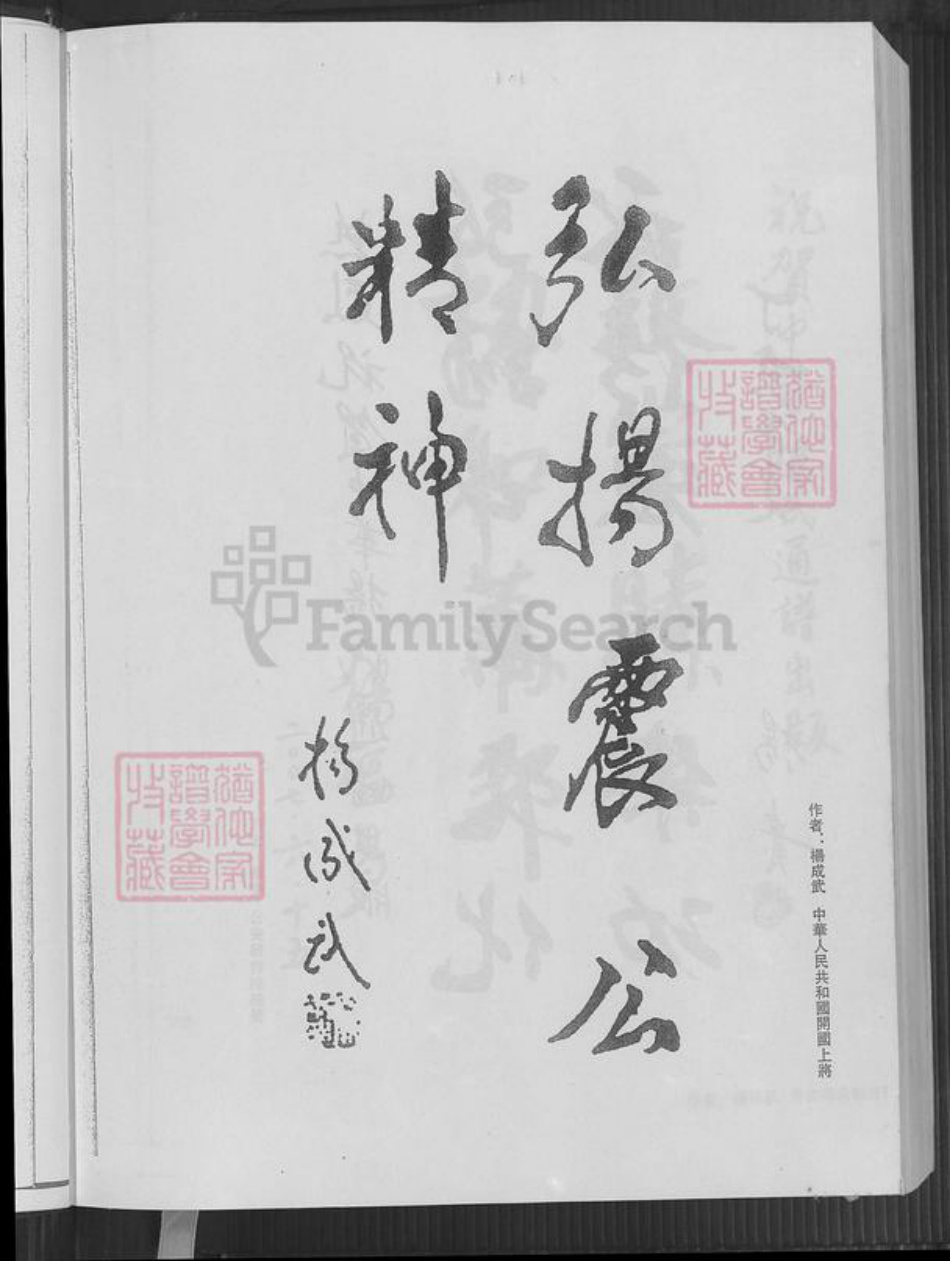 作者：楊成武 中華人民共和國開國上將
弘揚震公
精神
楊成武
猶他家
譜學會
收藏
猶他家
譜學會
收藏
FamilySearch